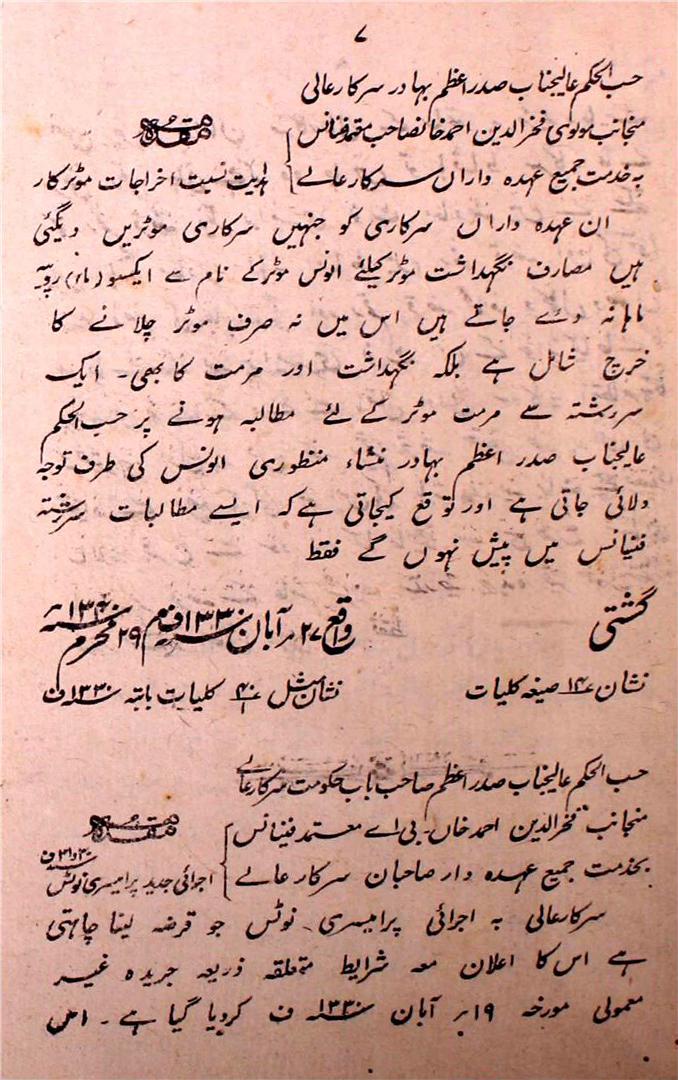 ۷
حسب الحکم عالیجناب صدر اعظم بہادر سرکار عالی
منجانب مولوی فخرالدین احمد خانصاحب معتمد فینانس
مقدمہ
بہ خدمت جمیع عہدہ داراں سرکار عالے
ہدایت نسبت اخراجات موٹر کار
ان عہدہ داراں سرکاری کو جنہیں سرکاری موٹریں دیگئی
ہیں مصارف نگہداشت موٹر کیلئے الونس موٹر کے نام سے ایکسو روپیہ
ماہانہ دئے جاتے ہیں اس میں نہ صرف موٹر چلانے کا
خرچ شامل ہے بلکہ نگہداشت اور مرمت کا بھی۔ ایک
سررشتہ سے مرمت موٹر کے لئے مطالبہ ہونے پر حسب الحکم
عالیجناب صدر اعظم بہادر منشاء منظوری الونس کی طرف توجہ
دلائی جاتی ہے اور توقع کیجاتی ہے کہ ایسے مطالبات سررشتہ
فینانس میں پیش نہوں گے فقط
گشتی
واقع ۲۷ر آبان ۱۳۳۰ف م ۲۹ محرم ۱۳۴۰ھ
نشان ۱۴ صیغہ کلیات
نشان مثل ۴۰/۱ کلیات بابتہ ۱۳۳۰ف
حسب الحکم عالیجناب صدر اعظم صاحب باب حکومت سرکار عالے
منجانب فخرالدین احمد خاں۔ بی اے معتمد فینانس
مقدمہ
بخدمت جمیع عہدہ دار صاحبان سرکار عالے
اجرائی جدید پرامیسری نوٹس
سرکار عالی بہ اجرائی پرامیسری نوٹس جو قرضہ لینا چاہتی
ہے اس کا اعلان معہ شرایط متعلقہ ذریعہ جریدہ غیر
معمولی مورخہ ۱۹ر آبان ۱۳۳۰ ف کردیا گیا ہے۔ اس